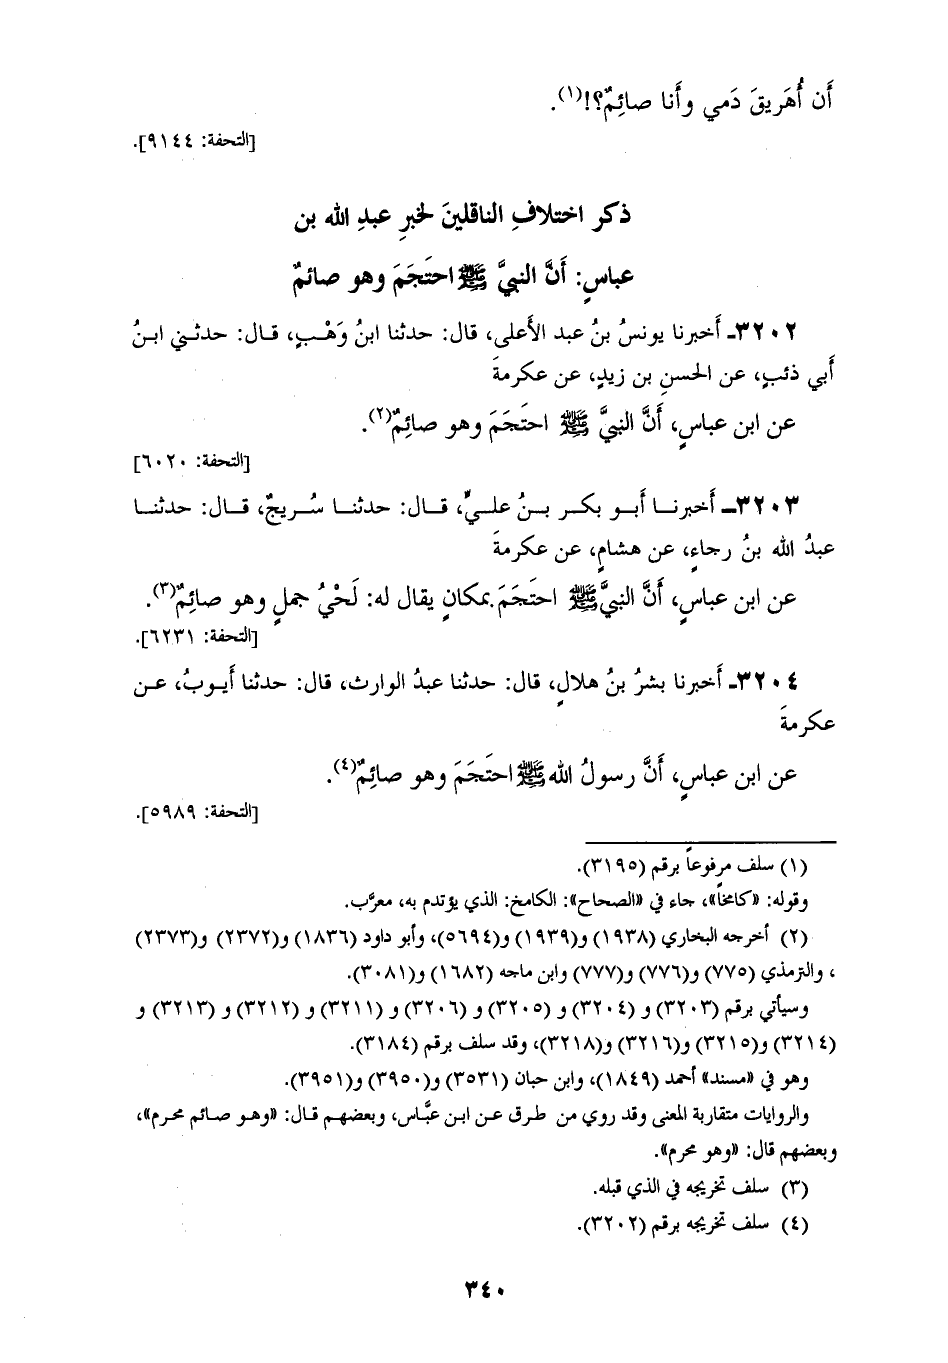 أَن أُهَرِيقَ دَمي وأَنا صائِمٌ؟!(١).
[التحفة: ٩١٤٤].
ذكر اختلافِ الناقلينَ لخبرِ عبدِ الله بن
عباسٍ: أَنَّ النبيَّ ﷺ احتَجَمَ وهو صائمٌ
٣٢٠٢ـ أَخبرنا يونسُ بنُ عبد الأَعلى، قال: حدثنا ابنُ وَهْبٍ، قال: حدثني ابنُ
أَبي ذئبٍ، عن الحسنِ بن زيدٍ، عن عكرمةَ
عن ابن عباسٍ، أَنَّ النبيَّ ﷺ احتَجَمَ وهو صائِمٌ(٢).
[التحفة: ٦٠٢٠]
٣٢٠٣ـ أَخبرنا أَبو بكر بنُ عليٍّ، قال: حدثنا سُريجٌ، قال: حدثنا
عبدُ الله بنُ رجاءٍ، عن هشامٍ، عن عكرمةَ
عن ابن عباسٍ، أَنَّ النبيَّ ﷺ احتَجَمَ بمكانٍ يقال له: لَحْيُ جملٍ وهو صائِمٌ(٣).
[التحفة: ٦٢٣١].
٣٢٠٤ـ أَخبرنا بشرُ بنُ هلالٍ، قال: حدثنا عبدُ الوارث، قال: حدثنا أَيوبُ، عن
عكرمةَ
عن ابن عباسٍ، أَنَّ رسولُ الله ﷺ احتَجَمَ وهو صائِمٌ(٤).
[التحفة: ٥٩٨٩].
(١) سلف مرفوعاً برقم (٣١٩٥).
وقوله: «كامخاً»، جاء في «الصحاح»: الكامخ: الذي يؤتدم به، معرَّب.
(٢) أخرجه البخاري (١٩٣٨) و(١٩٣٩) و(٥٦٩٤)، وأبو داود (١٨٣٦) و(٢٣٧٢) و(٢٣٧٣)
، والترمذي (٧٧٥) و(٧٧٦) و(٧٧٧) وابن ماجه (١٦٨٢) و(٣٠٨١).
وسيأتي برقم (٣٢٠٣) و (٣٢٠٤) و (٣٢٠٥) و (٣٢٠٦) و (٣٢١١) و (٣٢١٢) و (٣٢١٣) و
(٣٢١٤) و(٣٢١٥) و(٣٢١٦) و(٣٢١٨)، وقد سلف برقم (٣١٨٤).
وهو في «مسند» أحمد (١٨٤٩)، وابن حبان (٣٥٣١) و(٣٩٥٠) و(٣٩٥١).
والروايات متقاربة المعنى وقد روي من طرق عن ابن عبَّاس، وبعضهم قال: «وهو صائم محرم»،
وبعضهم قال: «وهو محرم».
(٣) سلف تخريجه في الذي قبله.
(٤) سلف تخريجه برقم (٣٢٠٢).
٣٤٠